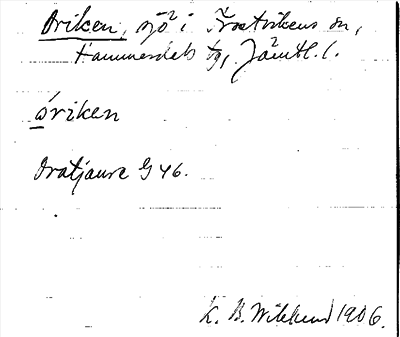 Oriken, sjö i Frostvikens sn,
Hammerdals tg, Jämtl. l.
óriken
Oratjaure G 46.
K. B. Wiklund 1906.